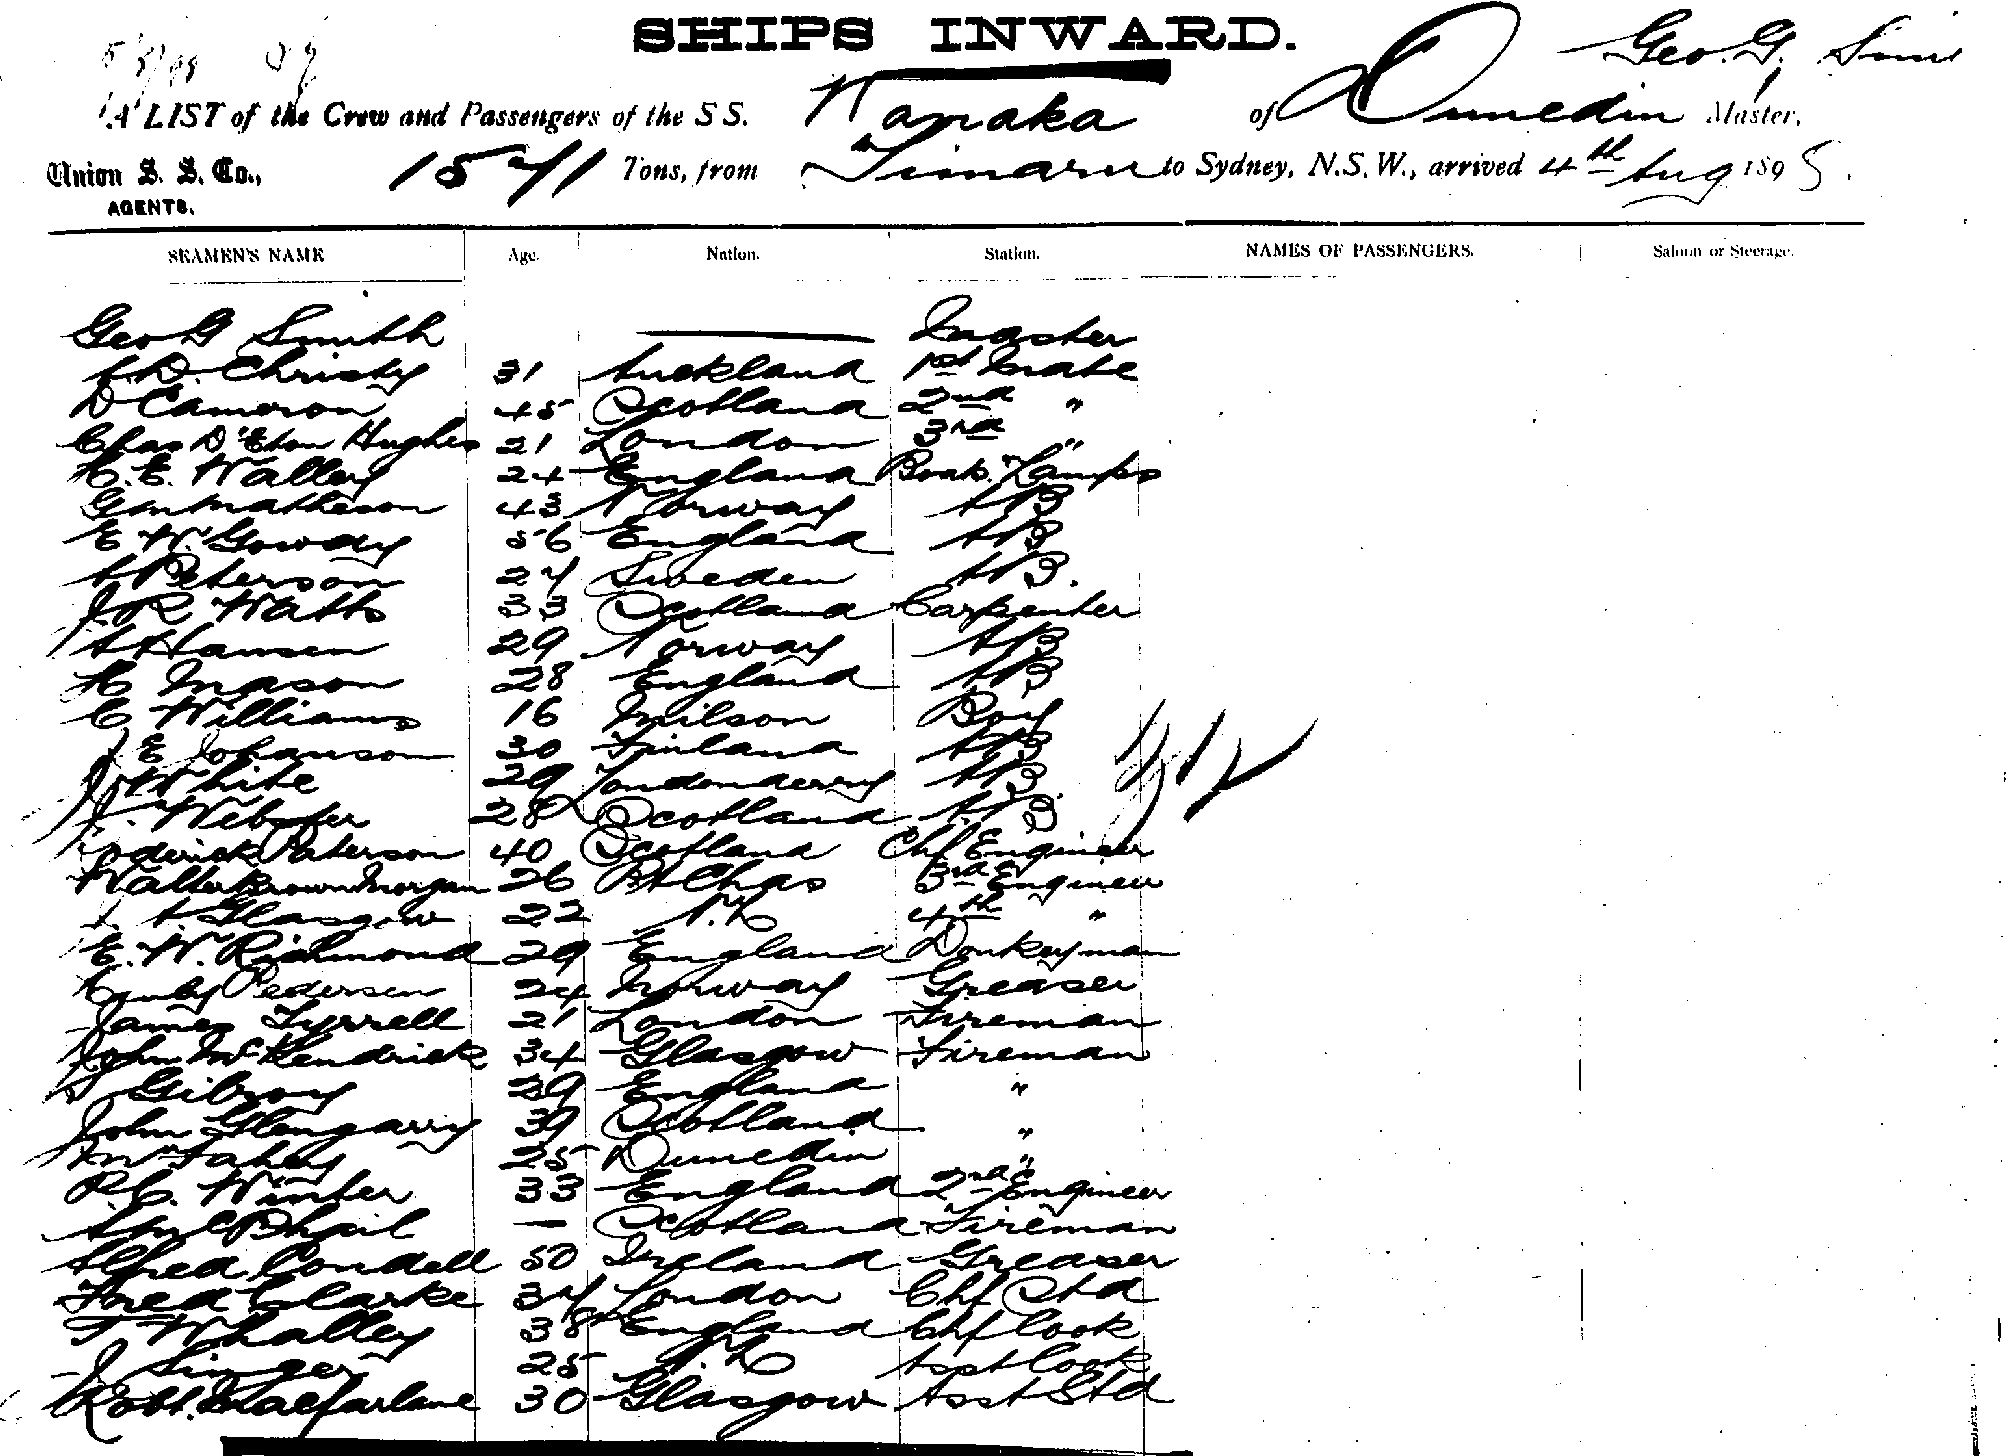 SHIPS INWARD.
Geo. G. Smi
A LIST of the Crew and Passengers of the S S. Wanaka of Dunedin Master,
Union S. S. Co., AGENTS. 1571 Tons, from Timaru to Sydney, N.S.W., arrived 4th Aug 1895.
SEAMEN'S NAME Age. Nation. Station. NAMES OF PASSENGERS. Saloon or Steerage.
Geo G Smith Master
A.D. Christy 31 Auckland 1st Mate
D Cameron 45 Scotland 2nd "
Chas D'Eton Hughes 21 London 3rd "
H. E. Walley 24 England Lamps
G M Matheson 43 Norway AB
E W Gowday 56 England AB
A Peterson 27 Sweden AB.
J. R. Watts 33 Scotland Carpenter
A Hansen 29 Norway AB
H Mason 28 England AB
C Williams 16 Boy
J E Johanson 30 Finland AB
J White 29 Londonderry AB
J. Webster 28 Scotland AB
Roderick Paterson 40 Scotland Chf Engineer
Walter Brown Morgan 26 Pt Chas 3rd Engineer
A. Glasgow 22 N.Z 4th "
E. W. Richmond 29 England Donkeyman
Pedersen 24 Norway Greaser
James Tyrrell 21 London Fireman
John McKendrick 34 Glasgow Fireman
Gibson 29 England "
John Glengarry 39 Scotland "
Fahey 25 Dunedin "
P. C. Winter 33 England 2nd Engineer
A McPhail — Scotland Fireman
Alfred Condell 50 Ireland Greaser
Fred Clarke 37 London Chf Std
T Whalley 38 England Chf Cook
J Singer 25 N.Z Asst Cook
Robt. Macfarlane 30 Glasgow Asst Std